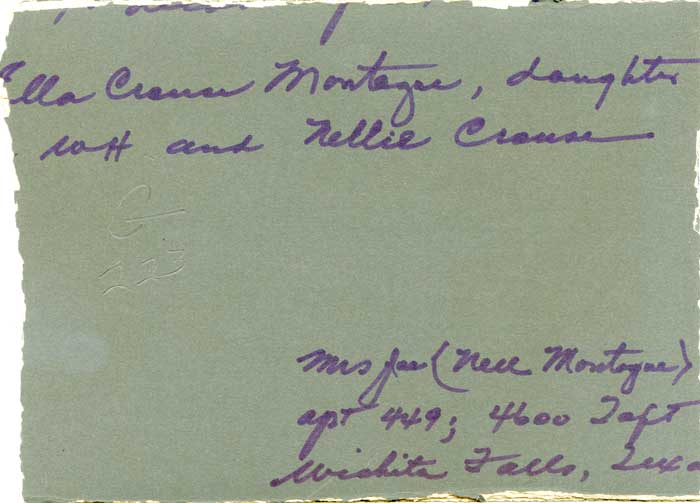 Ella Crouse Montague, daughter
WH and Nellie Crouse
G
223
Mrs Joe (Nell Montague)
apt 449; 4600 Taft
Wichita Falls, Texa